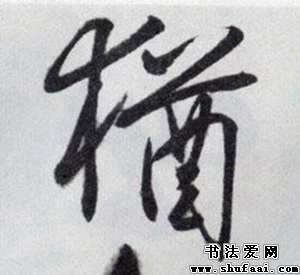 猶
书法爱网
www.shufaai.com